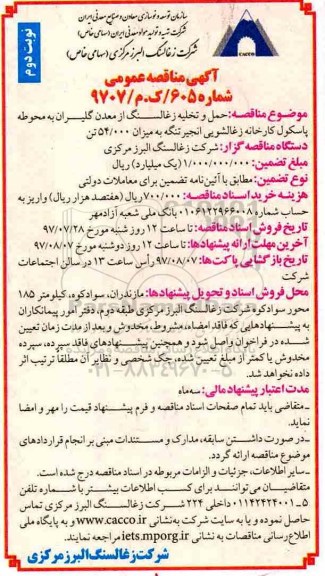 سازمان توسعه و نوسازی معادن و صنایع معدنی ایران
شرکت تهیه و تولید مواد معدنی ایران (سهامی خاص)
شرکت زغالسنگ البرز مرکزی (سهامی خاص)
CACCO
نوبت دوم
آگهی مناقصه عمومی
شماره ۶۰۵/ک.م/۹۷۰۷
موضوع مناقصه: حمل و تخلیه زغالسنگ از معدن گلیران به محوطه
پاسکول کارخانه زغالشویی انجیرتنگه به میزان ۵۴/۰۰۰ تن
دستگاه مناقصه گزار: شرکت زغالسنگ البرز مرکزی
مبلغ تضمین: ۱/۰۰۰/۰۰۰/۰۰۰ (یک میلیارد) ریال
نوع تضمین: مطابق با آئین‌نامه تضمین برای معاملات دولتی
هزینه خرید اسناد مناقصه: ۷۰۰/۰۰۰ ریال (هفتصد هزار ریال) واریز به
حساب شماره ۰۱۰۶۱۲۲۹۶۶۰۰۸ بانک ملی شعبه آزادمهر
تاریخ فروش اسناد مناقصه: تا ساعت ۱۲ روز شنبه مورخ ۹۷/۰۷/۲۸
آخرین مهلت ارائه پیشنهادها: تا ساعت ۱۲ روز دوشنبه مورخ ۹۷/۰۸/۰۷
تاریخ بازگشایی پاکت‌ها: ۹۷/۰۸/۰۷ رأس ساعت ۱۳ در سالن اجتماعات
شرکت
محل فروش اسناد و تحویل پیشنهادها: مازندران، سوادکوه، کیلومتر ۱۸۵
محور سوادکوه شرکت زغالسنگ البرز مرکزی طبقه دوم، دفتر امور پیمانکاران
به پیشنهادهایی که فاقد امضاء، مشروط، مخدوش و بعد از مدت زمان تعیین
شده در فراخوان واصل شود و همچنین پیشنهادهای فاقد سپرده، سپرده
مخدوش یا کمتر از مبلغ تعیین شده، چک شخصی و نظایر آن مطلقا ترتیب اثر
داده نخواهد شد.
۰۲۱-۸۸۳۴۹۶۷۰-۵
مدت اعتبار پیشنهاد مالی: سه‌ماه
ـ متقاضی باید تمام صفحات اسناد مناقصه و فرم پیشنهاد قیمت را مهر و امضا
نماید.
ـ در صورت داشتن سابقه، مدارک و مستندات مبنی بر انجام قراردادهای
موضوع مناقصه ارائه گردد.
ـ سایر اطلاعات، جزئیات و الزامات مربوطه در اسناد مناقصه درج شده است.
متقاضیان می‌توانند برای کسب اطلاعات بیشتر با شماره تلفن
۵ـ۰۱۱۴۲۴۲۴۰۰۱ داخلی ۲۲۴ شرکت زغالسنگ البرز مرکزی تماس
حاصل نموده و یا به سایت شرکت به‌نشانی www.cacco.ir و به پایگاه ملی
اطلاع‌رسانی مناقصات به نشانی iets.mporg.ir مراجعه نمایند.
شرکت زغالسنگ البرز مرکزی